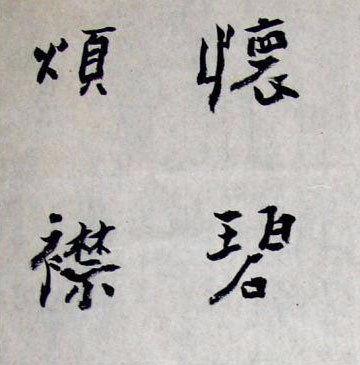 懷碧
煩襟